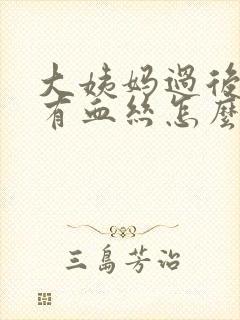 大姨妈過後
有血丝怎麼
三島芳治